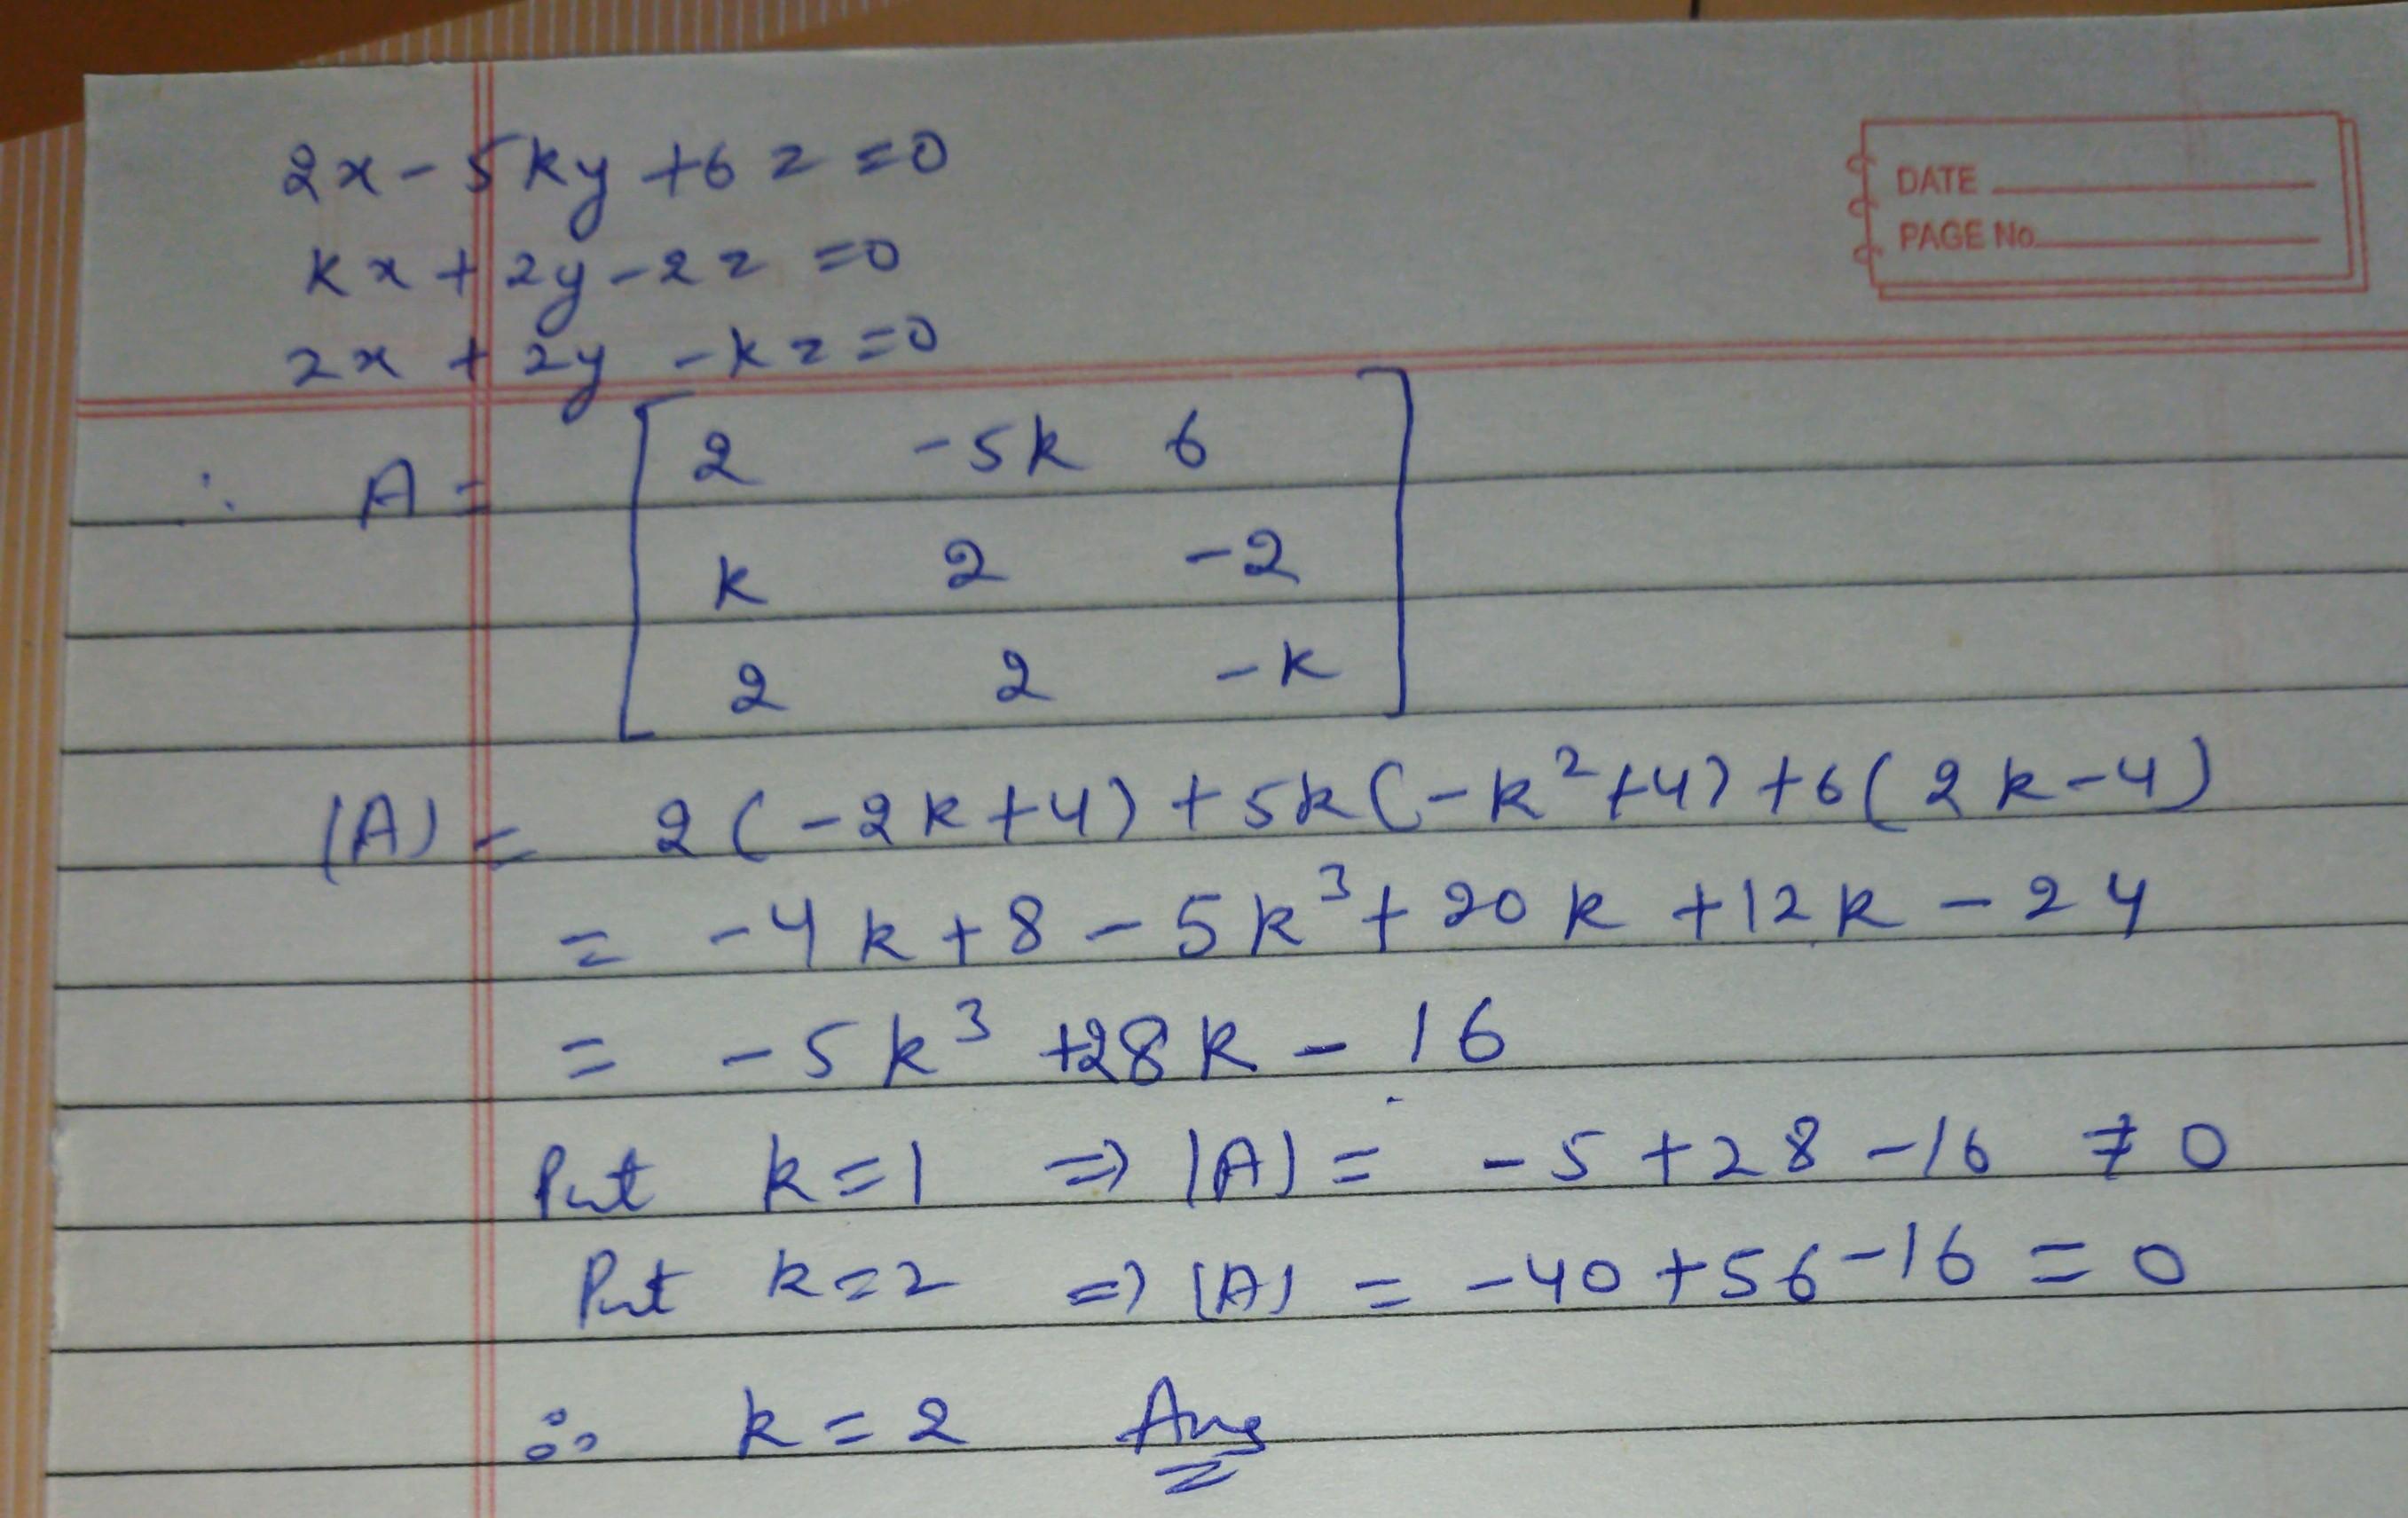 2x - 5ky + 6z = 0
kx + 2y - 2z = 0
2x + 2y - kz = 0
DATE
PAGE No.
∴ A = [ 2 -5k 6
k 2 -2
2 2 -k ]
|A| = 2(-2k+4) + 5k(-k²+4) + 6(2k-4)
= -4k + 8 - 5k³ + 20k + 12k - 24
= -5k³ + 28k - 16
Put k = 1 ⇒ |A| = -5 + 28 - 16 ≠ 0
Put k = 2 ⇒ |A| = -40 + 56 - 16 = 0
∴ k = 2 Ans